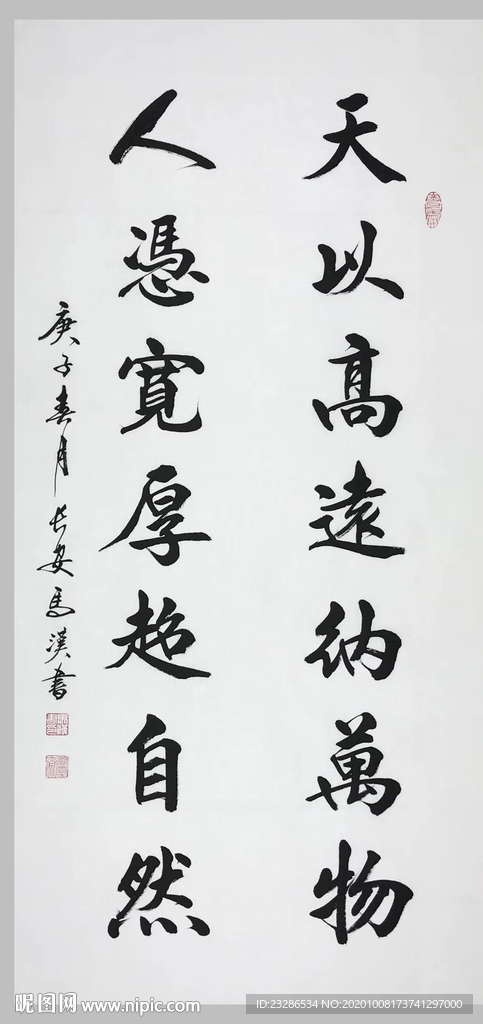 天以高遠納萬物
人憑寬厚超自然
庚子春月長安馬漢書
昵图网 www.nipic.com
ID:23286534 NO:20201008173741297000